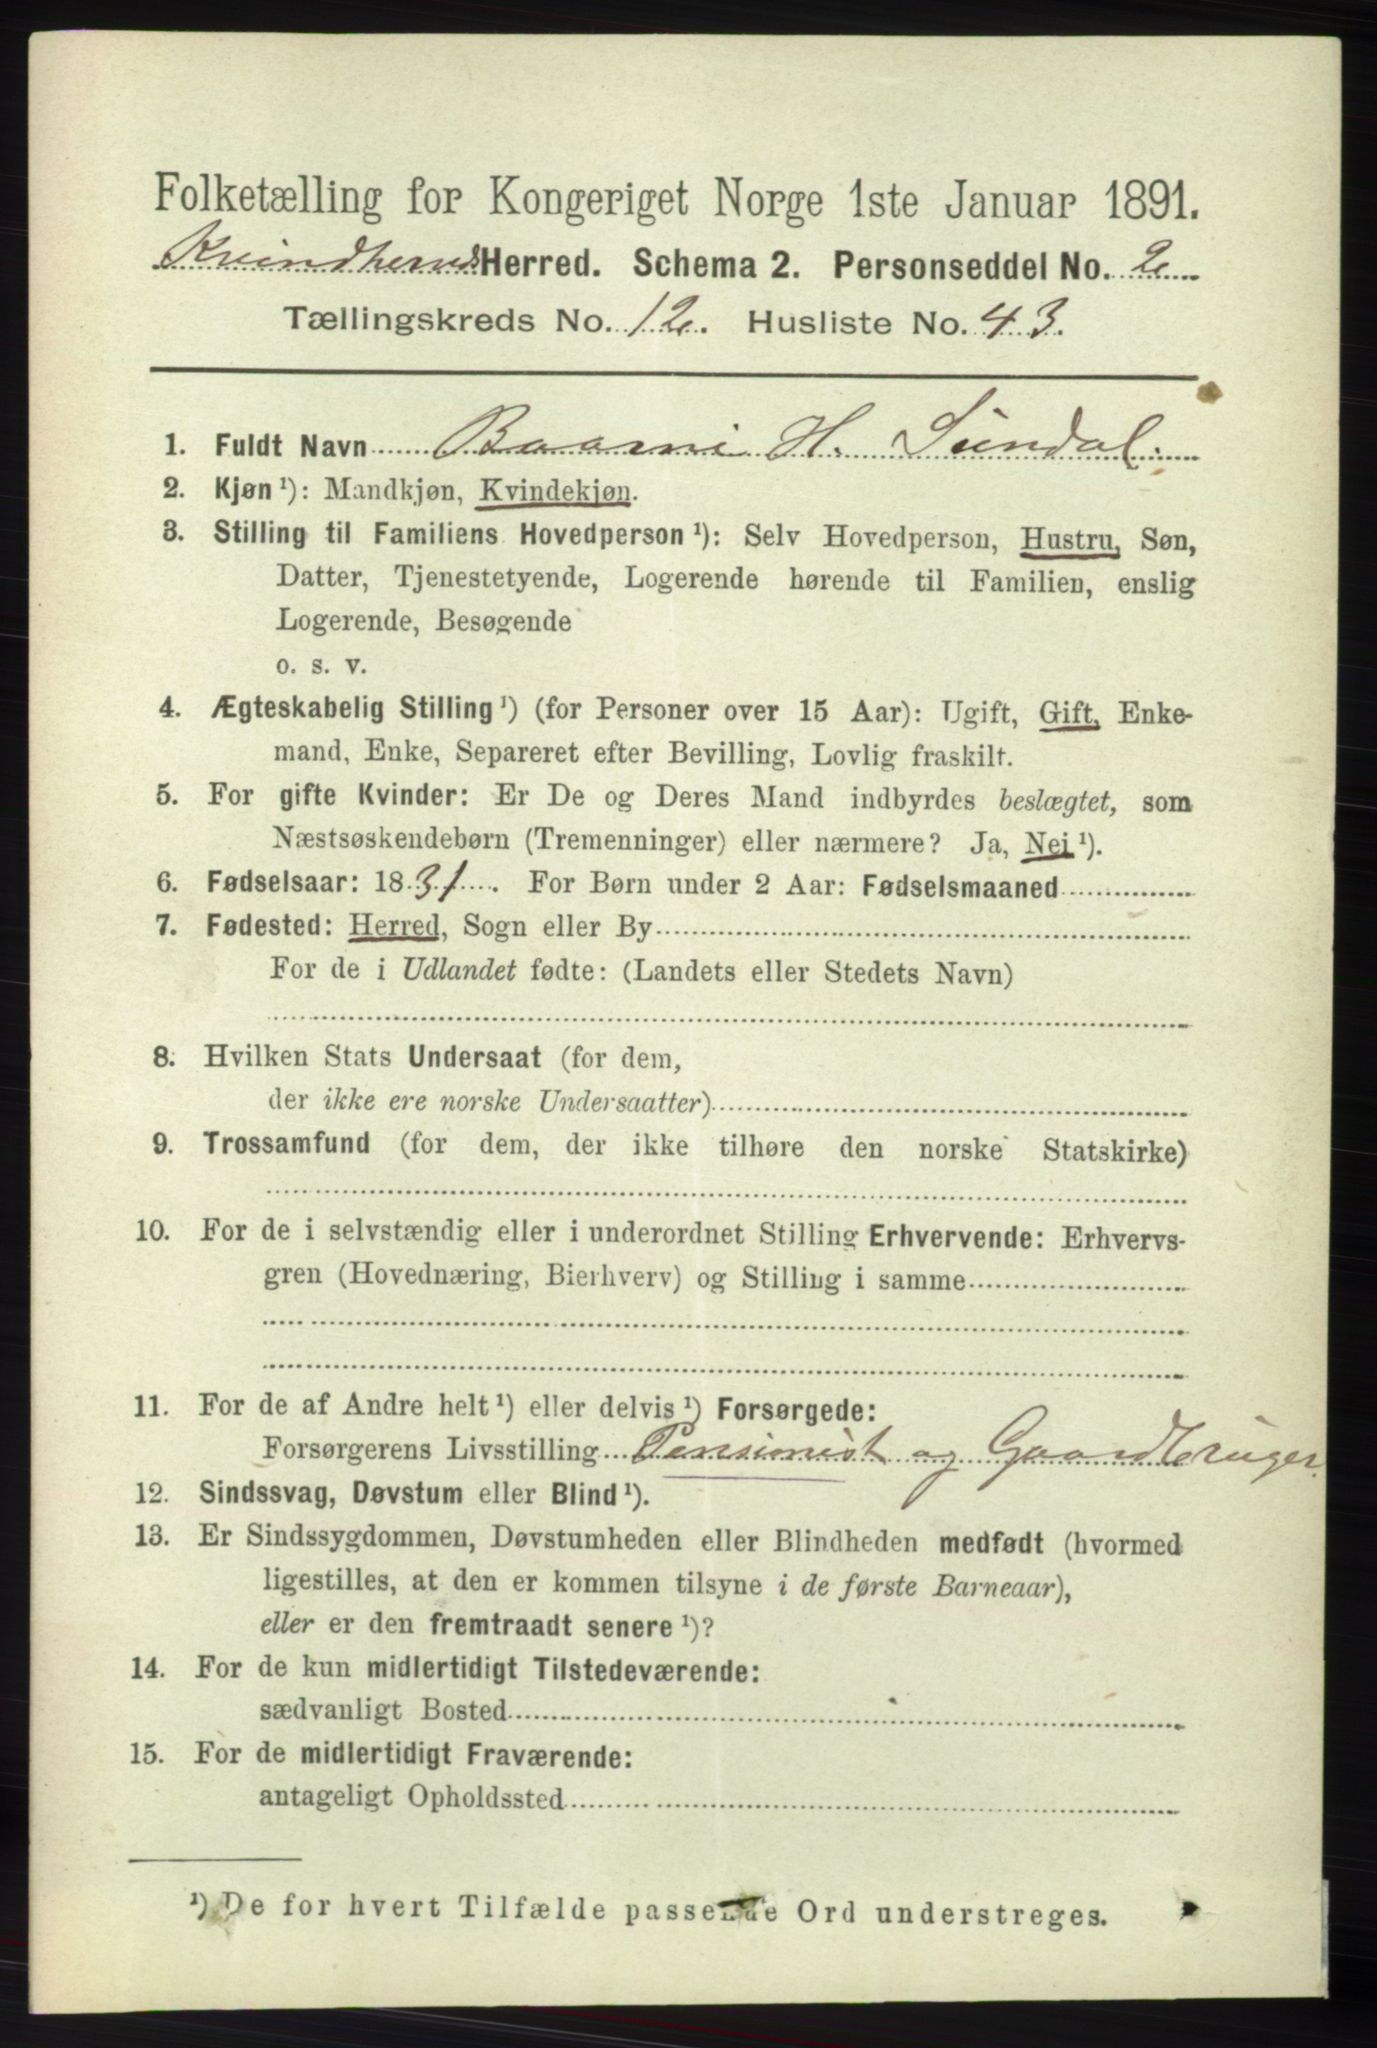 Folketælling for Kongeriget Norge 1ste Januar 1891.
Kvindherred Herred. Schema 2. Personseddel No. 2
Tællingskreds No. 12. Husliste No. 43.
1. Fuldt Navn Baarni H. Sundal.
2. Kjøn ¹): Mandkjøn, Kvindekjøn.
3. Stilling til Familiens Hovedperson ¹): Selv Hovedperson, Hustru, Søn,
Datter, Tjenestetyende, Logerende hørende til Familien, enslig
Logerende, Besøgende
o. s. v.
4. Ægteskabelig Stilling ¹) (for Personer over 15 Aar): Ugift, Gift, Enke-
mand, Enke, Separeret efter Bevilling, Lovlig fraskilt.
5. For gifte Kvinder: Er De og Deres Mand indbyrdes beslægtet, som
Næstsøskendebørn (Tremenninger) eller nærmere? Ja, Nei ¹).
6. Fødselsaar: 1831. For Børn under 2 Aar: Fødselsmaaned
7. Fødested: Herred, Sogn eller By
For de i Udlandet fødte: (Landets eller Stedets Navn)
8. Hvilken Stats Undersaat (for dem,
der ikke ere norske Undersaatter)
9. Trossamfund (for dem, der ikke tilhøre den norske Statskirke)
10. For de i selvstændig eller i underordnet Stilling Erhvervende: Erhvervs-
gren (Hovednæring, Bierhverv) og Stilling i samme
11. For de af Andre helt ¹) eller delvis ¹) Forsørgede:
Forsørgerens Livsstilling Pensionist og Gaardbruger.
12. Sindssvag, Døvstum eller Blind ¹).
13. Er Sindssygdommen, Døvstumheden eller Blindheden medfødt (hvormed
ligestilles, at den er kommen tilsyne i de første Barneaar),
eller er den fremtraadt senere ¹)?
14. For de kun midlertidigt Tilstedeværende:
sædvanligt Bosted
15. For de midlertidigt Fraværende:
antageligt Opholdssted
¹) De for hvert Tilfælde passende Ord understreges.